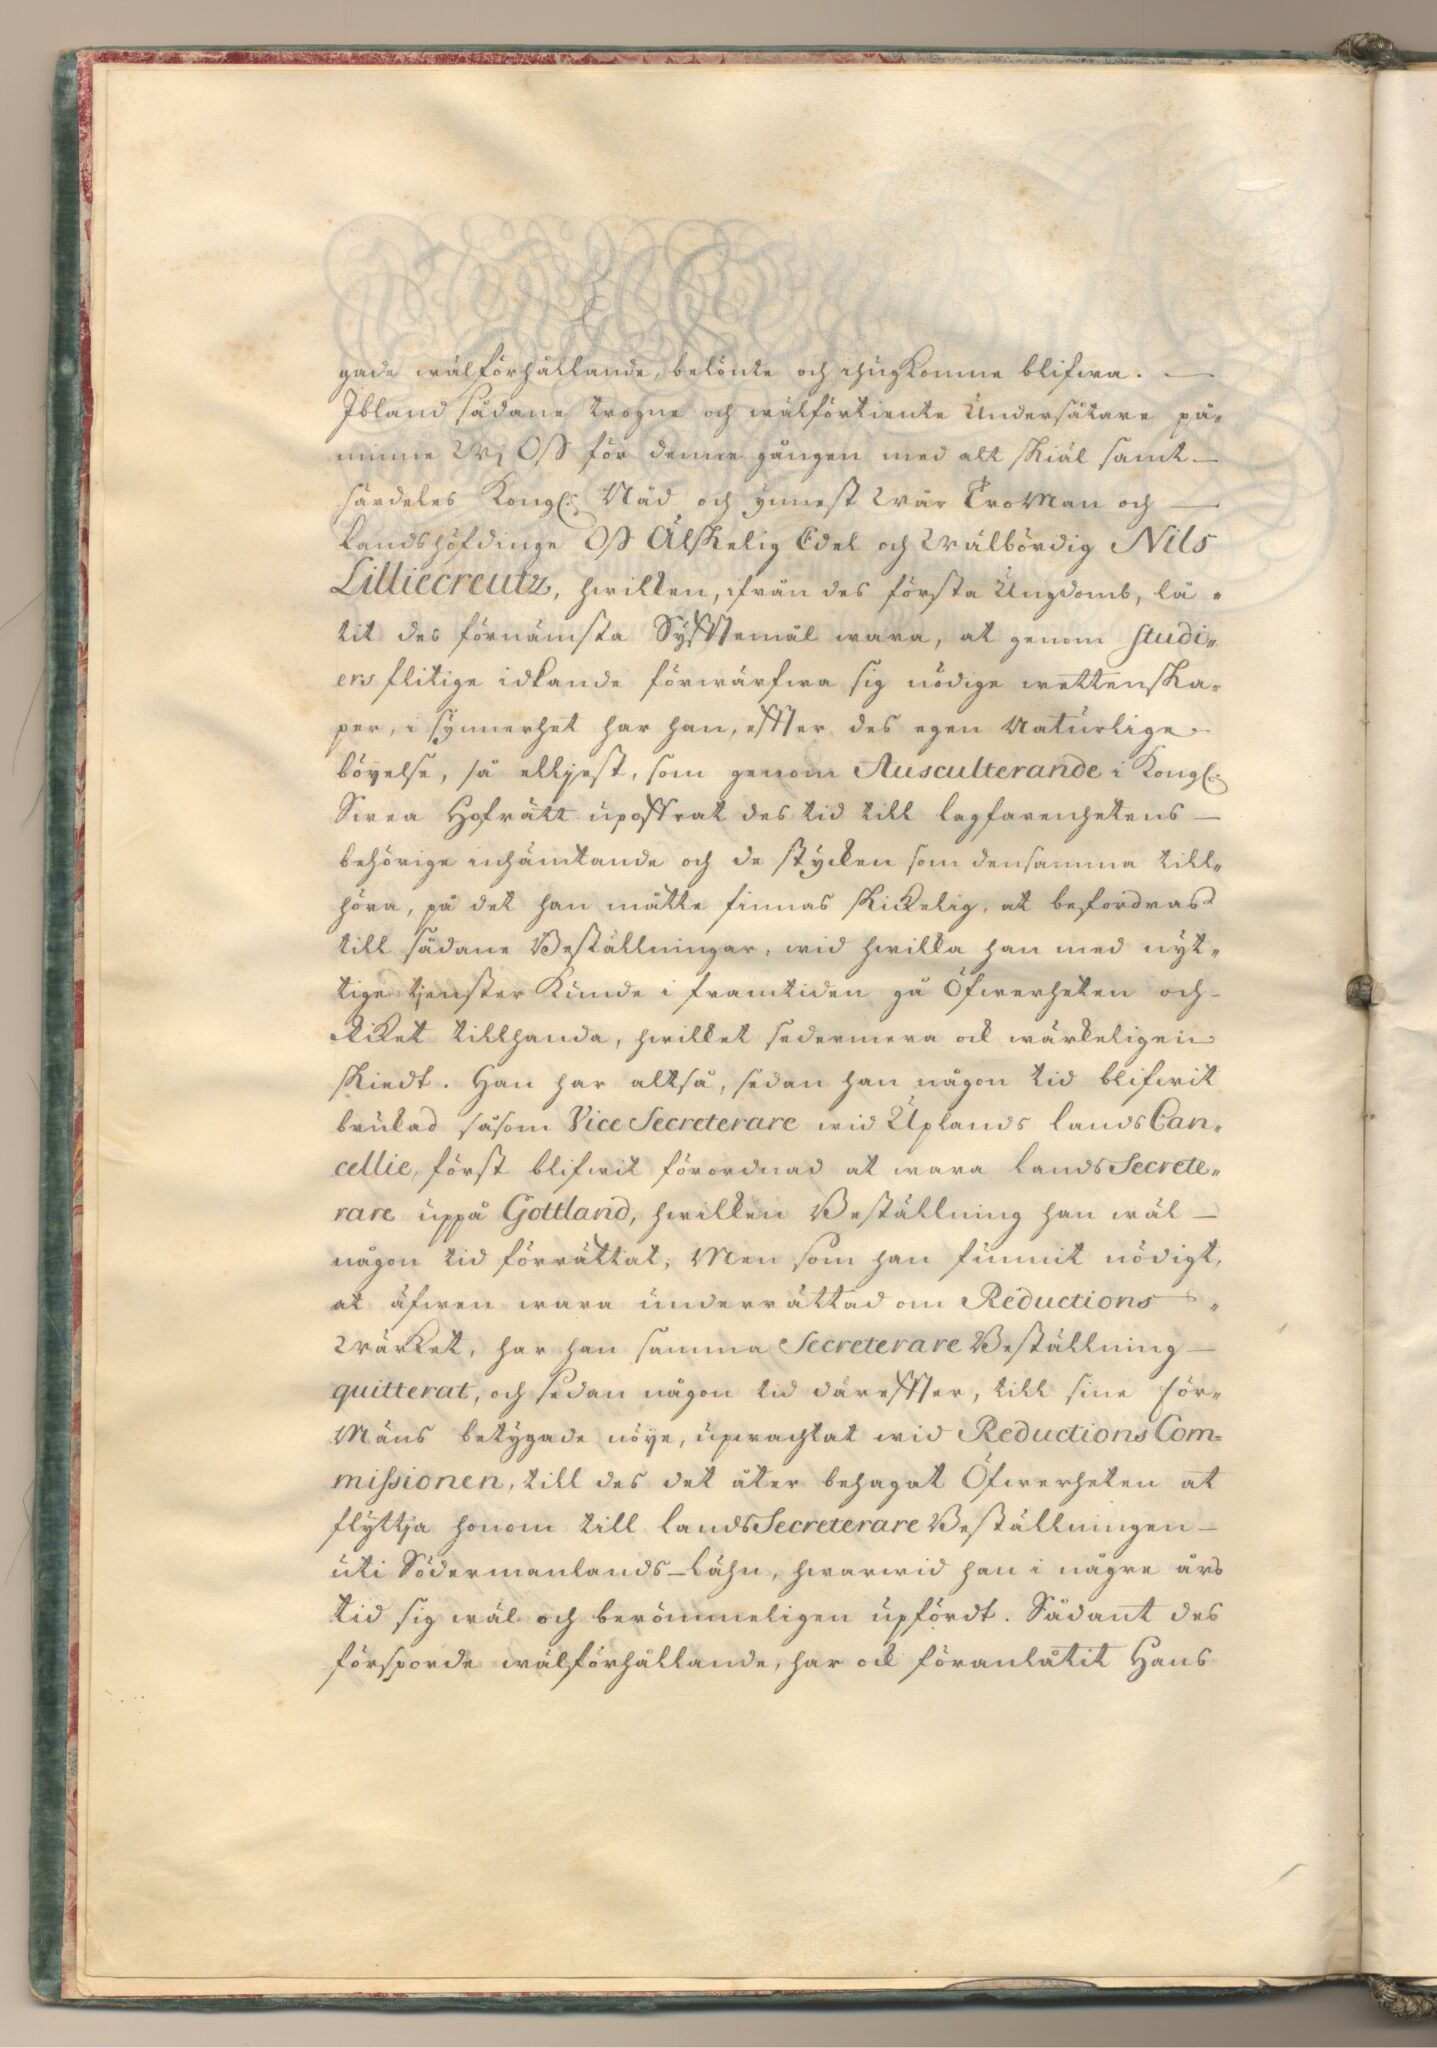 gade wälförhållande, belönte och ihugkomne blifwa. —
Ibland sådane trogne och wälförtiente Undersåtare på-
minne Wj OSS för denne gången med alt skiäl samt —
särdeles Kongl: Nåd och ynnest Wår TroMan och —
Landshöfdinge OSS Älskelig Edel och Wälbördig Nils
Lilliecreutz, hwilken, ifrån des första Ungdomb, lå-
tit des förnämsta Syfftemål wara, at genom studi-
ers flitige idkande förwärfwa sig nödige wettenska-
per, i synnerhet har han, effter des egen Naturlige
böyelse, så elljest, som genom Ausculterande i Kongl:
Swea Hofrätt upoffrat des tid till lagfarenhetens —
behörige inhämtande och de stycken som densamma till-
höra, på det han måtte finnas skickelig, at befordras
till sådane Beställningar, wid hwilka han med nyt-
tige tjenster kunde i framtiden gå Öfwerheten och
Riket tillhanda, hwilket sedermera ock wärkeligen
skiedt. Han har altså, sedan han någon tid blifwit
brukad såsom Vice Secreterare wid Uplands lands Can-
cellie, först blifwit förordnad at wara lands Secrete-
rare uppå Gottland, hwilken Beställning han wäl —
någon tid förrättat; Men som han funnit nödigt,
at äfwen wara underrättad om Reductions -
Wärket, har han samma Secreterare Beställning —
quitterat, och sedan någon tid däreffter, till sine För-
Mäns betygade nöye, upwachtat wid Reductions Com-
missionen, till des det åter behagat Öfwerheten at
flyttja honom till lands Secreterare Beställningen —
uti Södermanlands-Lähn, hwarwid han i någre års
tid sig wäl och berömmeligen upfördt. Sådant des
försporde wälförhållande, har ock föranlåtit Hans